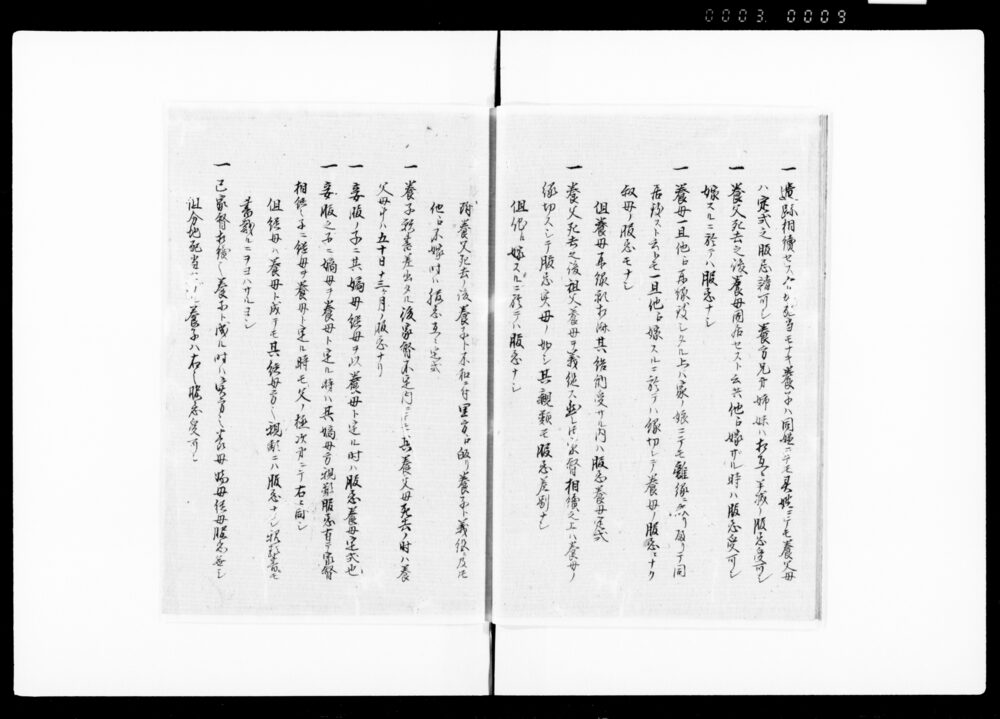 0003 0009
一 遺跡相續セス分地モ当モナキ養子ハ同姓ニテモ異姓ニテモ養父母
ハ定式之服忌請可シ養方兄弟姉妹ハ相互ニ半減ノ服忌受可シ
一 養父死去之後養母同居セスト云共他ヘ嫁ザル時ハ服忌受可シ
嫁スルニ於テハ服忌ナシ
一 養母一旦他ヘ再縁致シタル上ハ家ノ娘ニテモ離縁ニ而帰リテ同
居致スト云トモ一旦他ヘ嫁スルニ於テハ縁切レテ養母ノ服忌ニナク
叔母ノ服忌モナシ
但養母再縁約相済其結納受サル内ハ服忌養母定式
一 養父死去之後祖父養母ヲ義絶ス出シ候ハ家督相續之上ハ養母ノ
縁切スシテ服忌実母ノ如シ其親類モ服忌差別ナシ
但他ヘ嫁スルニ於テハ服忌ナシ
附養父死去ノ後養子ト不和ニ付里方ヘ皈リ養子ト義絶ニ及モ
他ヘ不嫁時ハ服忌互ニ定式
一 養子願書差出タル後家督不定内ニ候ハヽ共養父母死去ノ時ハ養
父母ハ五十日十三ヶ月ノ服忌ナリ
一 妾腹ノ子ニ其嫡母継母ヲ以養母ト定ル時ハ服忌養母定式也
一 妾腹之子ニ嫡母ヲ養母ト定ル時ハ其嫡母方親類服忌有リ家督
相続之子ニ継母ヲ養母ト定ル時モ父ノ極次第ニテ右ニ同シ
但継母ハ養母ト成テモ其継母方之親類ニハ服忌ナシ
書載ルニヨハサルヨシ
一 已家督相続シ養子ト成ル時ハ実方之養母嫡母継母服忌無シ
但分地配当 養子ハ右之服忌受可シ